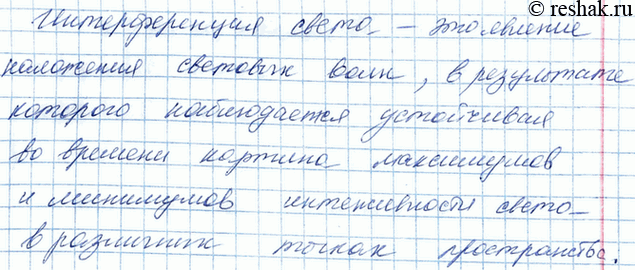 reshak.ru
Интерференция света – это явление
наложения световых волн, в результате
которого наблюдается устойчивая
во времени картина максимумов
и минимумов интенсивности света
в различных точках пространства.